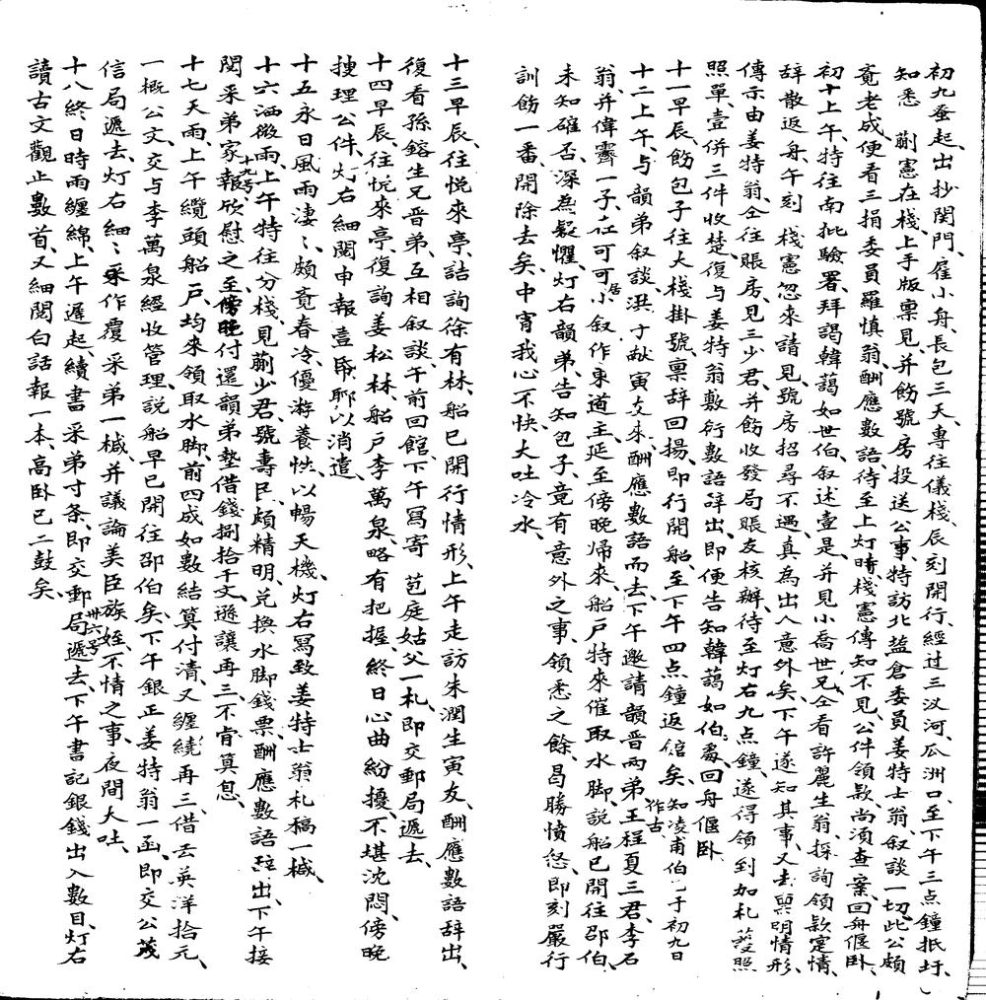 初九蚤起、出抄関門、雇小舟、長包三天、專往儀棧、辰刻開行、經过三汊河、瓜洲口、至下午三点鐘抵圩、
知悉 蒯憲在棧、上手版禀見、并飭號房投送公事、特訪北盐倉委員姜特士翁、叙談一切、此公頗
竟老成、便看三捐委員羅慎翁、酬應數語、待至上灯時、棧憲傳知不見、公件領款、尚須查案、回舟偃卧、
初十上午、特往南批驗署、拜謁韓藹如世伯、叙述壹是、并見小喬世兄、仝看許麗生翁、探詢領款定情、
辞散返舟、午刻棧憲忽来請見、號房招尋不遇、真為出人意外矣、下午遂知其事、又去禀明情形、
傳示由姜特翁、仝往賬房、見三少君、并飭收發局賬友核辦、待至灯右九点鐘、遂得領到如札 護照
照單、壹併三件收楚、復与姜特翁敷衍數語辞出、即便告知韓藹如伯處、回舟偃卧、
十一早辰、飭包子往大棧掛號、禀辞回揚、即行開船、至下午四点鐘返館矣、知凌甫伯已于初九日
作古
十二上午、与韻弟叙談、洪于猷寅友来、酬應數語而去、下午邀請韻晋兩弟、王程夏三君、李石
翁、并偉霽一子、在可可居小叙、作東道主、延至傍晚歸来、船戸特来催取水脚、説船已開往邵伯、
未知確否、深為疑懼、灯右韻弟告知包子、竟有意外之事、領悉之餘、曷勝憤怒、即刻嚴行
訓飭一番、開除去矣、中宵我心不快、大吐冷水、
十三早辰、往悦来亭、詰詢徐有林、船已開行情形、上午走訪朱潤生寅友、酬應數語辞出、
復看孫鎔生兄晋弟、互相叙談、午前回館、下午寫寄 苞庭姑父一札、即交郵局遞去、
十四早辰、往悦来亭、復詢姜松林、船戸李萬泉、略有把握、終日心曲紛擾、不堪沈悶、傍晚
搜理公件、灯右細閲申報壹昏、聊以消遣、
十五永日風雨凄〻、頗竟春冷、優游養性、以暢天機、灯右寫致姜特士翁札稿一椷、
十六洒微雨、上午特往分棧、見蒯少君號壽民、頗精明、兑換水脚錢票、酬應數語辞出、下午接
閲采弟家報十九号、欣慰之至、傍晚付還韻弟墊借錢捌拾千文、遜讓再三、不肯算息、
十七天雨、上午纜頭船戸、均来領取水脚、前四成如數結算付清、又纏繞再三、借去英洋拾元、
一概公文、交与李萬泉經收管理、説船早已開往邵伯矣、下午銀正姜特翁一函、即交公茂
信局遞去、灯右細〻采作覆采弟一椷、并議論美臣族姪、不情之事、夜間大吐、
十八終日時雨纏綿、上午遲起、續書采弟寸条、即交郵局卅六号遞去、下午書記銀錢出入數目、灯右
讀古文觀止數首、又細閲白話報一本、高卧已二鼓矣、